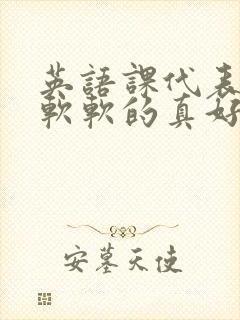 英語課代表
軟軟的真好
安墓天使